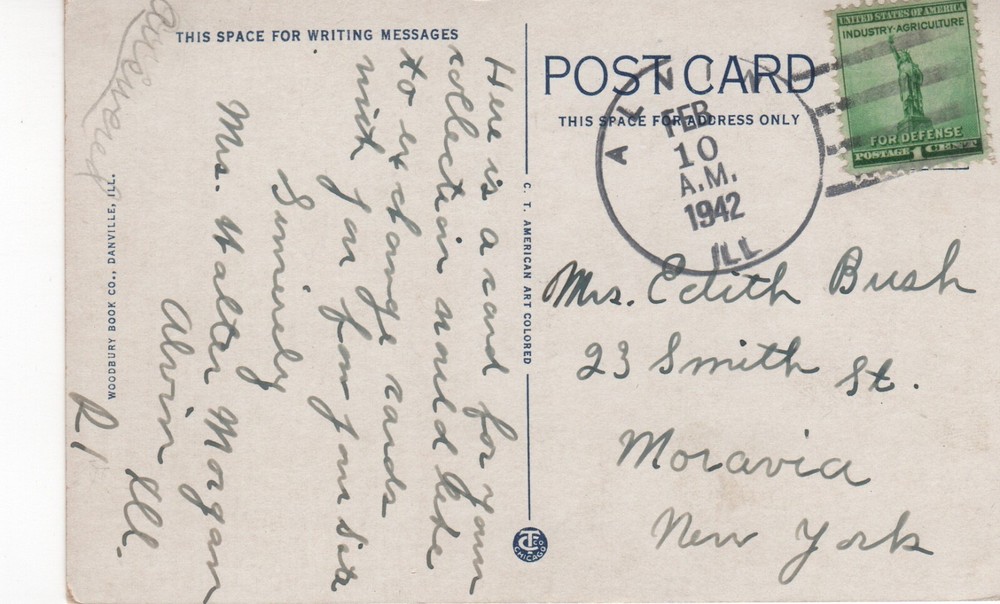 THIS SPACE FOR WRITING MESSAGES
answered
Here is a card for your
collection would like
to exchange cards
with you from your state
Sincerely
Mrs. Walter Morgan
Alvin Ill.
R 1
WOODBURY BOOK CO., DANVILLE, ILL.
C. T. AMERICAN ART COLORED
CT CO CHICAGO
POST CARD
THIS SPACE FOR ADDRESS ONLY
ALVIN
FEB
10
A.M.
1942
ILL
UNITED STATES OF AMERICA
INDUSTRY-AGRICULTURE
FOR DEFENSE
POSTAGE 1 CENT
Mrs. Edith Bush
23 Smith St.
Moravia
New York